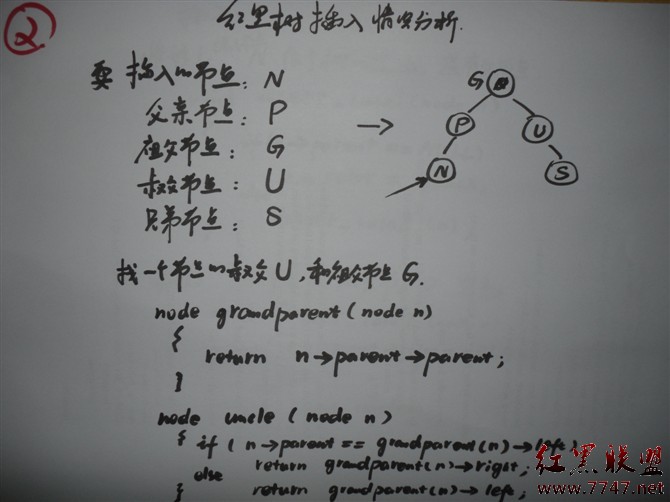 ②
红黑树插入情况分析.
要插入的节点: N
父亲节点: P
祖父节点: G
叔父节点: U
兄弟节点: S
→
G
P
U
N
S
找一个节点的叔父U,和祖父节点G.
node grandparent(node n)
{
return n→parent→parent;
}
node uncle(node n)
{ if(n→parent == grandparent(n)→left)
return grandparent(n)→right;
else
} return grandparent(n)→left;
红黑联盟
www.7747.net